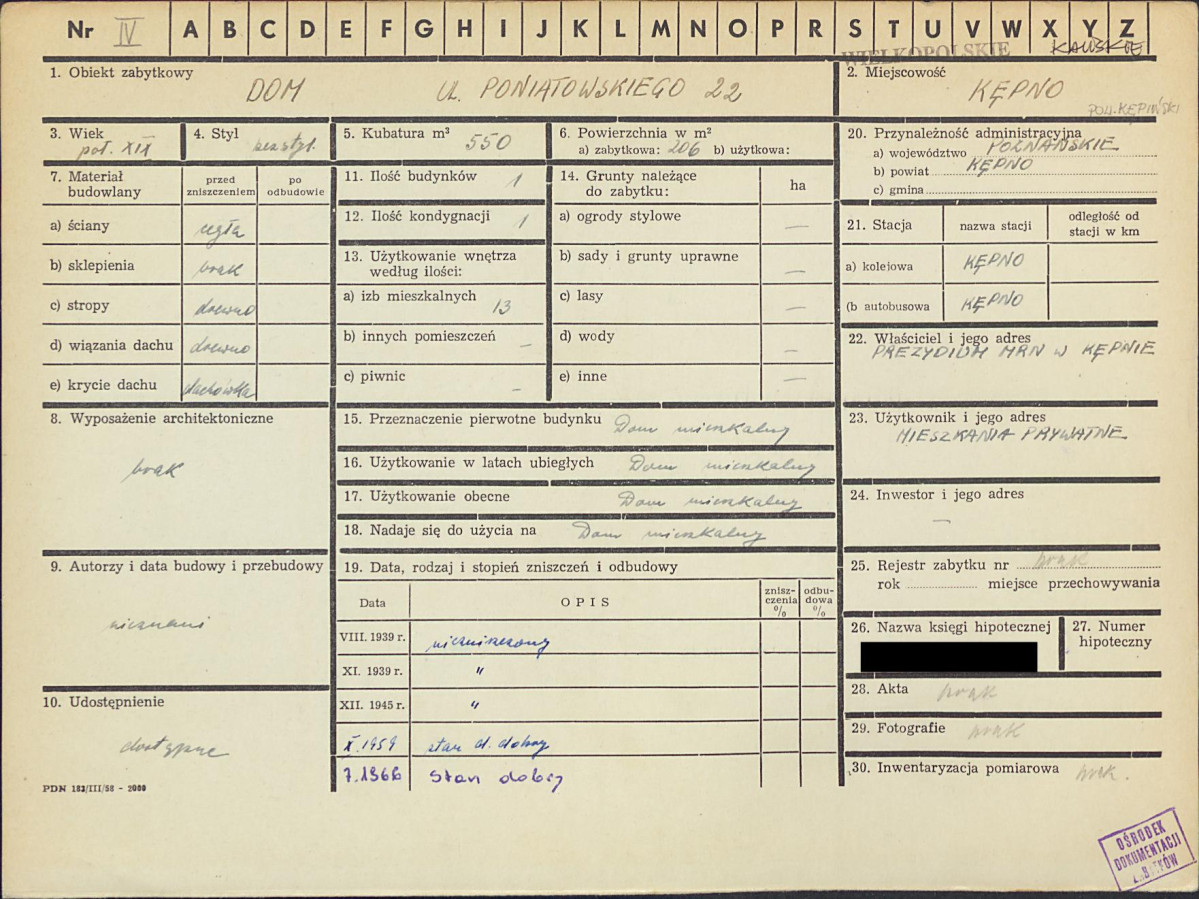 Nr IV A B C D E F G H I J K L M N O P R S T U V W X Y Z
WIELKOPOLSKIE KALISKIE
1. Obiekt zabytkowy
DOM UL. PONIATOWSKIEGO 22
2. Miejscowość
KĘPNO
POW. KĘPIŃSKI
3. Wiek
poł. XIX
4. Styl
bezstyl.
5. Kubatura m³
550
6. Powierzchnia w m²
a) zabytkowa: 206 b) użytkowa:
7. Materiał budowlany
przed zniszczeniem
po odbudowie
a) ściany cegła
b) sklepienia brak
c) stropy drewno
d) wiązania dachu drewno
e) krycie dachu dachówka
8. Wyposażenie architektoniczne
brak
9. Autorzy i data budowy i przebudowy
nieznani
10. Udostępnienie
dostępne
PDN 183/III/58 - 2000
11. Ilość budynków 1
12. Ilość kondygnacji 1
13. Użytkowanie wnętrza
według ilości:
a) izb mieszkalnych 13
b) innych pomieszczeń –
c) piwnic –
14. Grunty należące
do zabytku:
ha
a) ogrody stylowe —
b) sady i grunty uprawne —
c) lasy —
d) wody —
e) inne —
15. Przeznaczenie pierwotne budynku Dom mieszkalny
16. Użytkowanie w latach ubiegłych Dom mieszkalny
17. Użytkowanie obecne Dom mieszkalny
18. Nadaje się do użycia na Dom mieszkalny
19. Data, rodzaj i stopień zniszczeń i odbudowy
Data
OPIS
znisz-
czenia
%
odbu-
dowa
%
VIII. 1939 r. niezniszczony
XI. 1939 r. "
XII. 1945 r. "
X.1959 stan d. dobry
7.1966 Stan dobry
20. Przynależność administracyjna
a) województwo POZNAŃSKIE
b) powiat KĘPNO
c) gmina
21. Stacja
nazwa stacji
odległość od
stacji w km
a) kolejowa KĘPNO
(b autobusowa KĘPNO
22. Właściciel i jego adres
PREZYDIUM MRN W KĘPNIE
23. Użytkownik i jego adres
MIESZKANIA PRYWATNE
24. Inwestor i jego adres
—
25. Rejestr zabytku nr brak
rok miejsce przechowywania
26. Nazwa księgi hipotecznej
27. Numer
hipoteczny
28. Akta brak
29. Fotografie brak
30. Inwentaryzacja pomiarowa brak.
OŚRODEK
DOKUMENTACJI
ZABYTKÓW